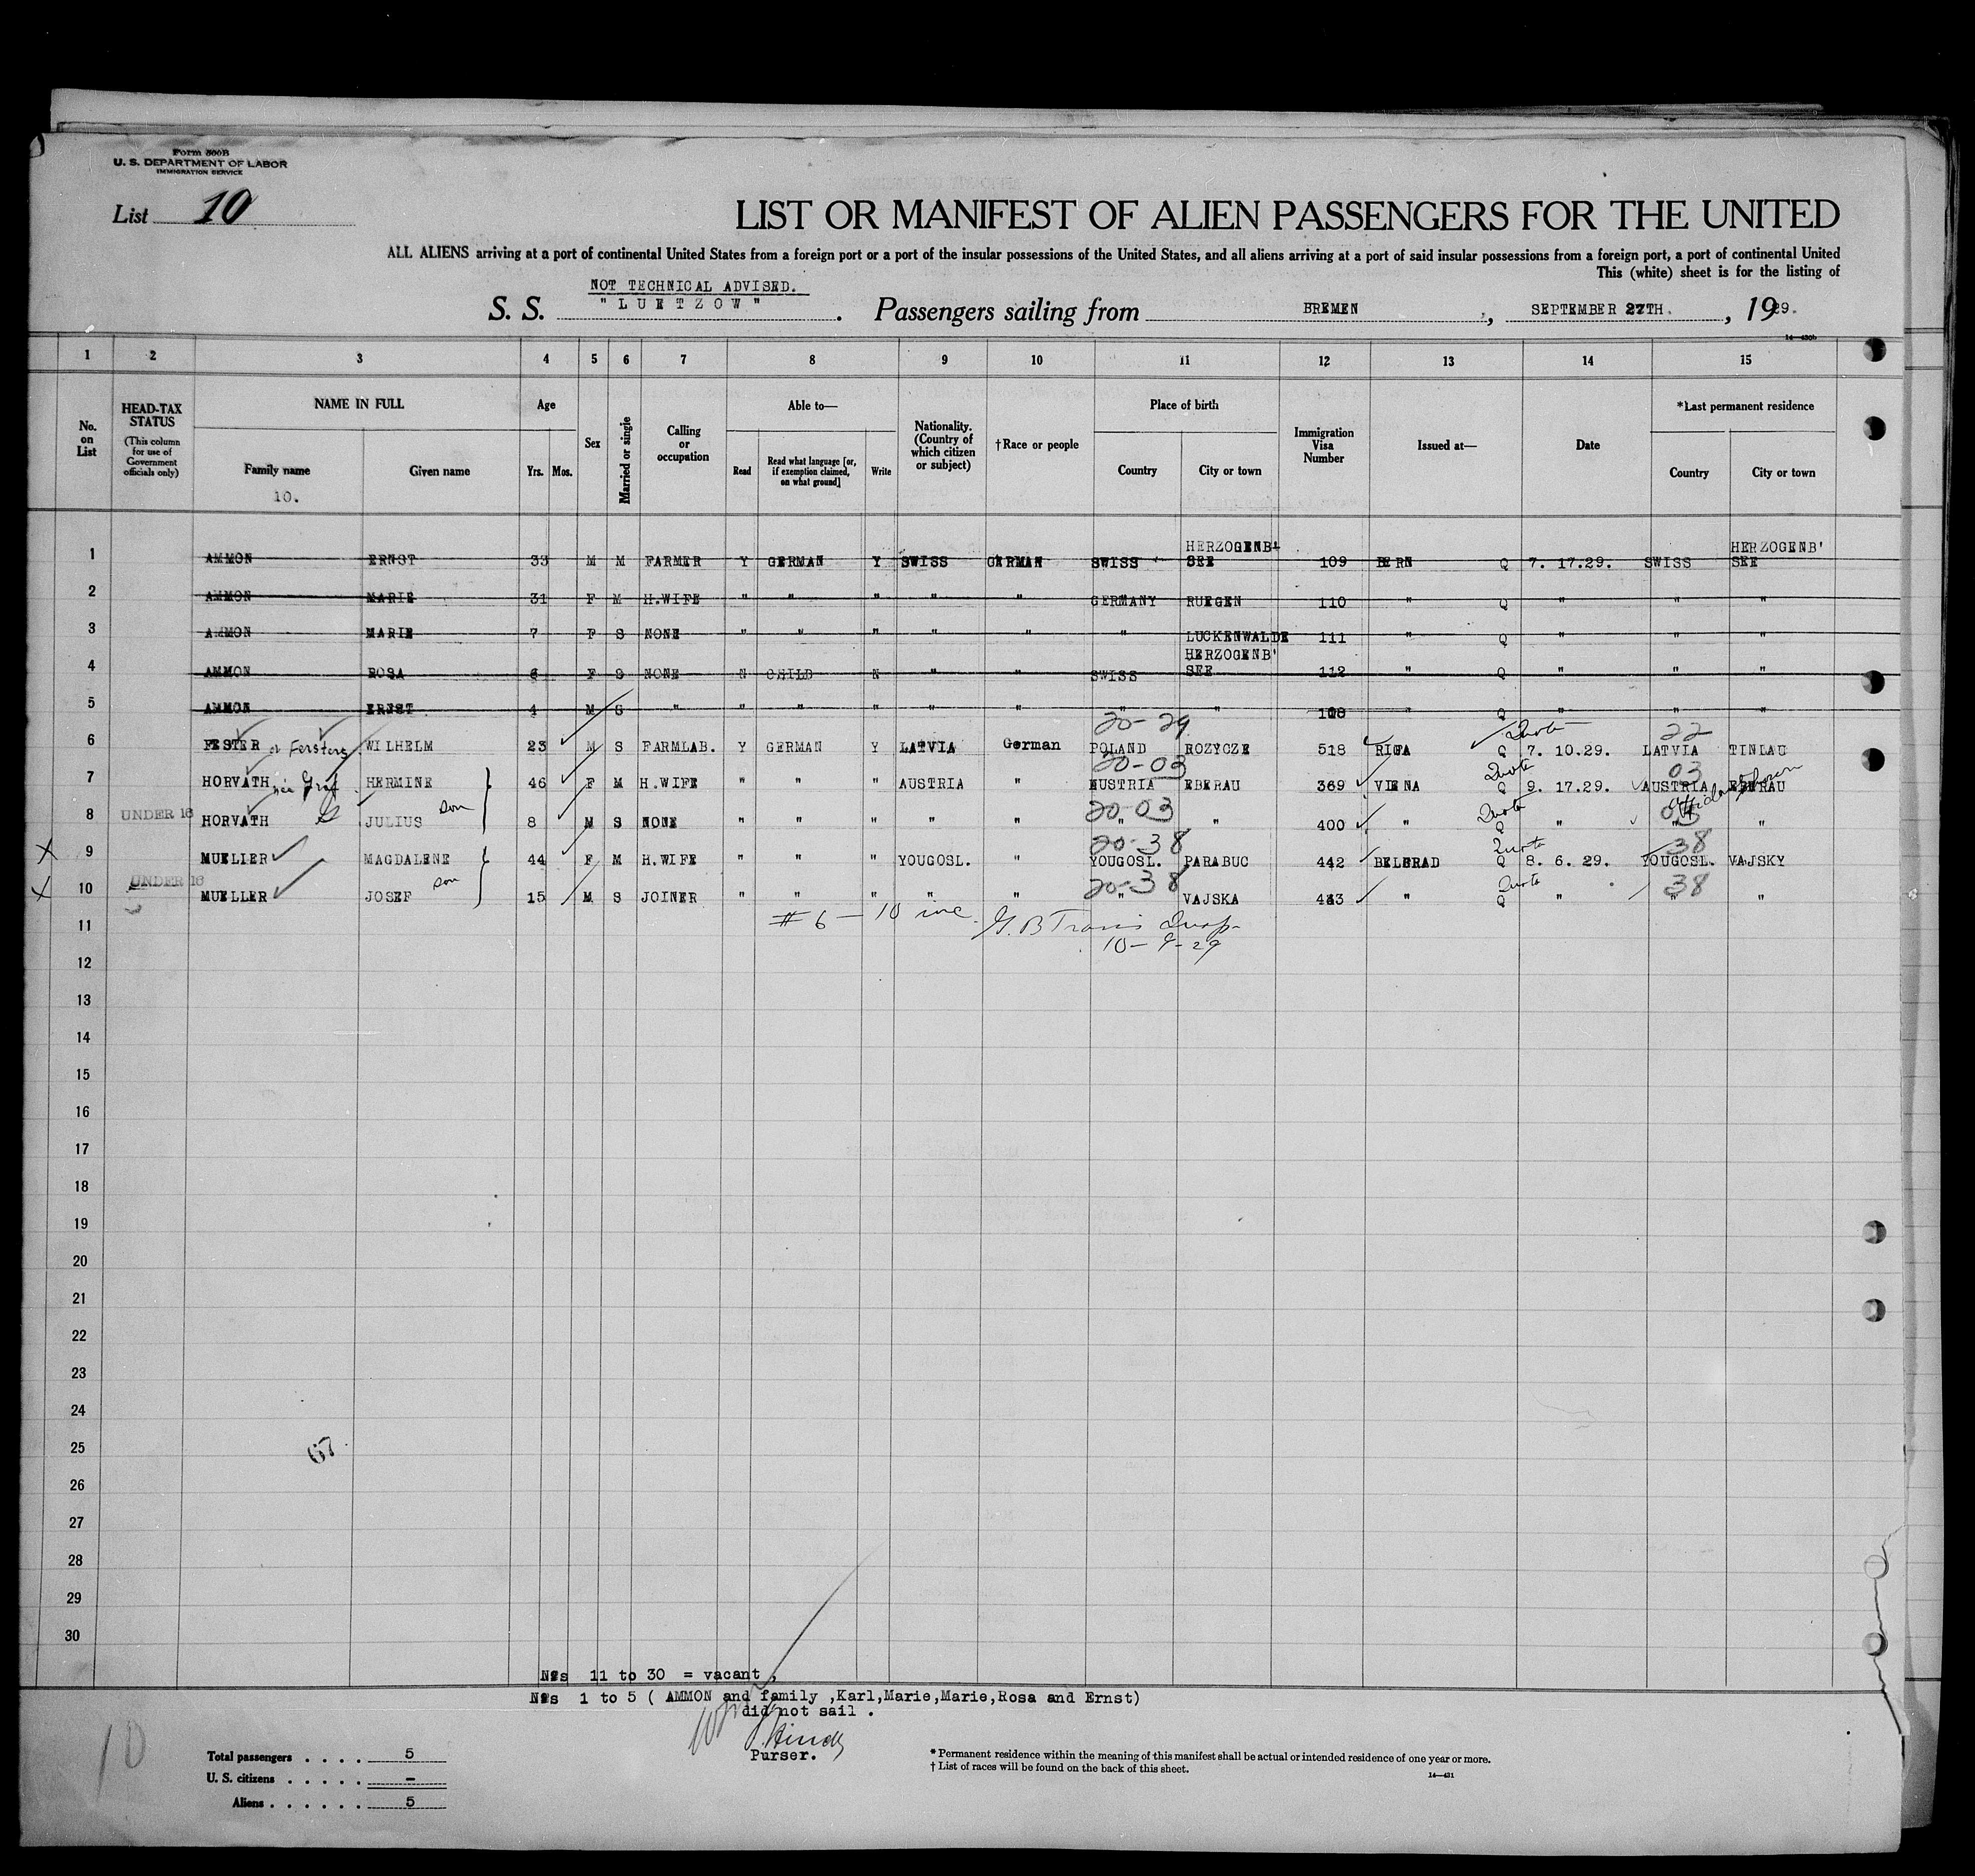 Form 500B
U. S. DEPARTMENT OF LABOR
IMMIGRATION SERVICE
List 10
LIST OR MANIFEST OF ALIEN PASSENGERS FOR THE UNITED
ALL ALIENS arriving at a port of continental United States from a foreign port or a port of the insular possessions of the United States, and all aliens arriving at a port of said insular possessions from a foreign port, a port of continental United
This (white) sheet is for the listing of
NOT TECHNICAL ADVISED.
S. S. "LUETZOW". Passengers sailing from BREMEN, SEPTEMBER 27TH., 1929.
14—430b
1 2 3 4 5 6 7 8 9 10 11 12 13 14 15
No. on List
HEAD-TAX STATUS (This column for use of Government officials only)
NAME IN FULL Family name Given name
10.
Age Yrs. Mos.
Sex
Married or single
Calling or occupation
Able to— Read Read what language [or, if exemption claimed, on what ground] Write
Nationality. (Country of which citizen or subject)
†Race or people
Place of birth Country City or town
Immigration Visa Number
Issued at—
Date
*Last permanent residence Country City or town
1 AMMON ERNST 33 M M FARMER Y GERMAN Y SWISS GERMAN SWISS HERZOGENB' SEE 109 BERN Q 7. 17.29. SWISS HERZOGENB' SEE
2 AMMON MARIE 31 F M H.WIFE " " " " " GERMANY RUEGEN 110 " Q " " "
3 AMMON MARIE 7 F S NONE " " " " " " LUCKENWALDE 111 " Q " " "
4 AMMON ROSA 6 F S NONE N CHILD N " " SWISS HERZOGENB' SEE 112 " Q " " "
5 AMMON ERNST 4 M S " " " " " " " " " Q " " "
20-29 Quota 22
6 FESTER or WILHELM 23 M S FARMLAB. Y GERMAN Y LATVIA German POLAND ROZYCZE 518 RIGA Q 7. 10.29. LATVIA TINDAU
20-03 Quota 03
7 HORVATH née Graf HERMINE 46 F M H.WIFE " " " AUSTRIA " AUSTRIA EBERAU 369 VIENA Q 9. 17.29. AUSTRIA EBERAU
20-03 Quota 03
8 UNDER 16 HORVATH G JULIUS son 8 M S NONE " " " " " " " 400 " Q " " "
20-38 Quota 38
X 9 MUELLER MAGDALENE 44 F M H.WIFE " " " YOUGOSL. " YOUGOSL. PARABUC 442 BELGRAD Q 8. 6. 29. YOUGOSL. VAJSKY
20-38 Quota 38
X 10 UNDER 16 MUELLER JOSEF son 15 M S JOINER " " " " " " VAJSKA 443 " Q " " "
11 # 6 – 10 inc. G. B Travis Insp.
10-9-29
12
13
14
15
16
17
18
19
20
21
22
23
24
25 67
26
27
28
29
30
Nos 11 to 30 = vacant,
Nos 1 to 5 ( AMMON and family ,Karl,Marie,Marie,Rosa and Ernst)
did not sail .
Purser.
10
Total passengers . . . . 5
U. S. citizens . . . . . –
Aliens . . . . . . 5
* Permanent residence within the meaning of this manifest shall be actual or intended residence of one year or more.
† List of races will be found on the back of this sheet.
14—431